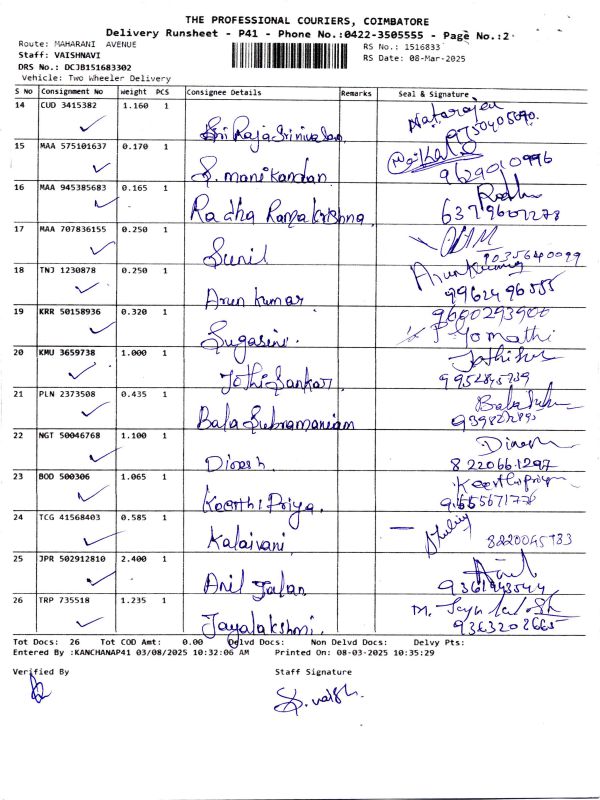 THE PROFESSIONAL COURIERS, COIMBATORE
Delivery Runsheet - P41 - Phone No.:0422-3505555 - Page No.:2
Route: MAHARANI AVENUE
RS No.: 1516833
Staff: VAISHNAVI
RS Date: 08-Mar-2025
DRS No.: DCJB151683302
Vehicle: Two Wheeler Delivery
S No Consignment No Weight PCS Consignee Details Remarks Seal & Signature
14 CUD 3415382 1.160 1
Sri Raja Srinivasan Natarajan
15 MAA 575101637 0.170 1
S. manikandan 9629010996
16 MAA 945385683 0.165 1
Radha Ramakrishna 6379607278
17 MAA 707836155 0.250 1
Sunil
18 TNJ 1230878 0.250 1 Arun Kumar
Arun kumar 9962496555
19 KRR 50158936 0.320 1
Sugasini. P. Gomathi
20 KMU 3659738 1.000 1
Jothi Sankar.
21 PLN 2373508 0.435 1
Bala Subramaniam
22 NGT 50046768 1.100 1 Dinesh
Dinesh. 8220661297
23 BOD 500306 1.065 1 Keerthipriya
Keerthi Priya.
24 TCG 41568403 0.585 1
Kalaivani.
25 JPR 502912810 2.400 1
Anil Jalan
26 TRP 735518 1.235 1
Jayalakshmi. 9363202665
Tot Docs: 26 Tot COD Amt: 0.00 Delvd Docs: Non Delvd Docs: Delvy Pts:
Entered By :KANCHANAP41 03/08/2025 10:32:06 AM Printed On: 08-03-2025 10:35:29
Verified By Staff Signature